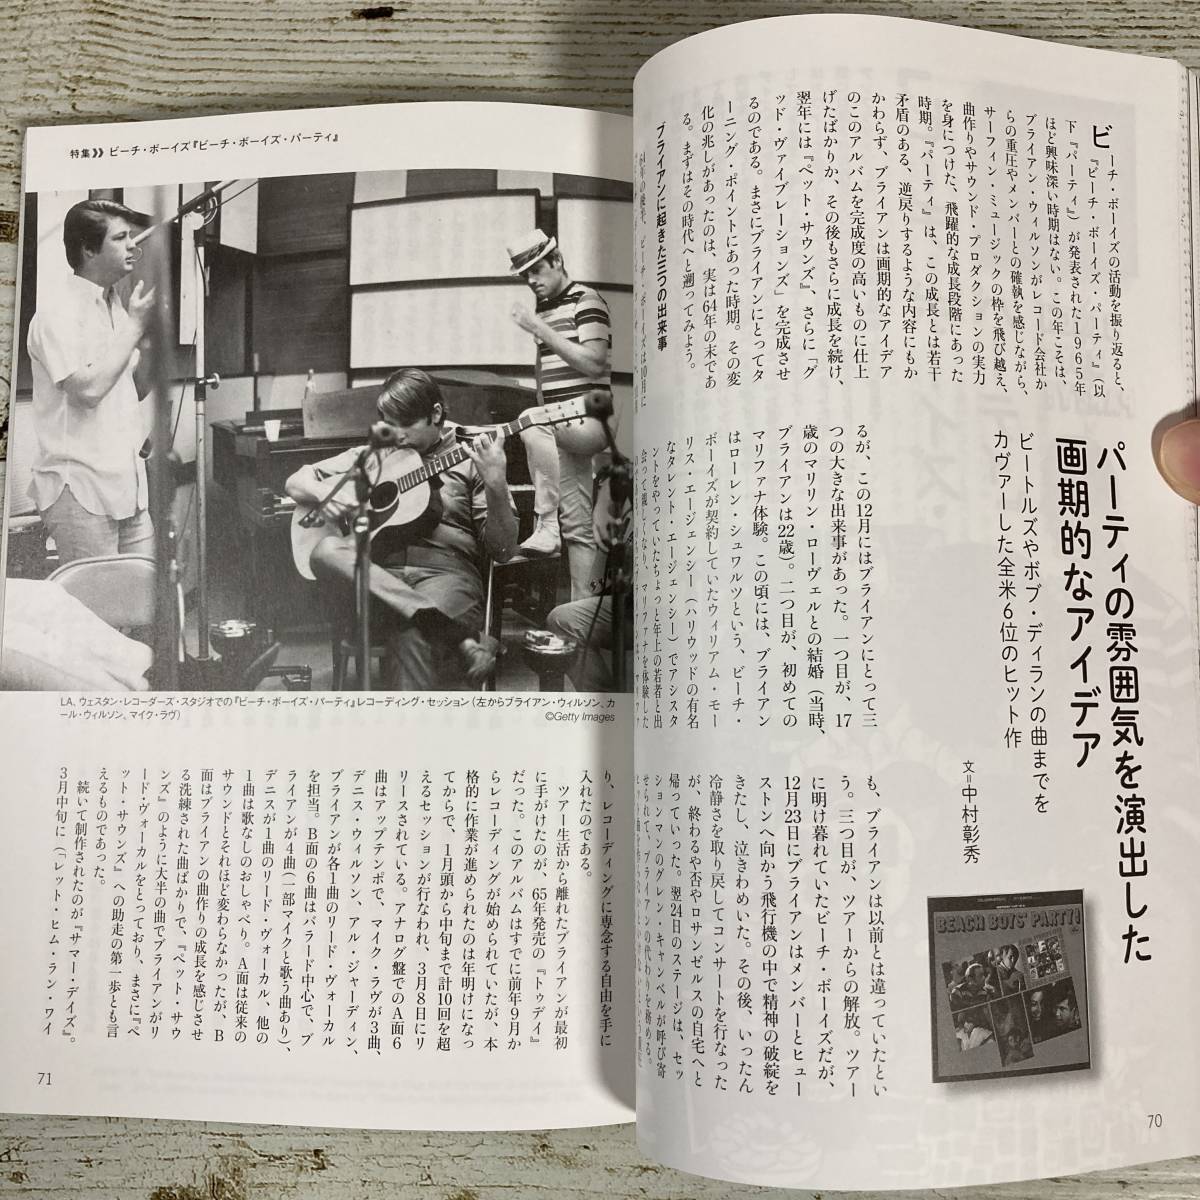 パーティの雰囲気を演出した
画期的なアイデア
ビートルズやボブ・ディランの曲までを
カヴァーした全米6位のヒット作
文=中村彰秀
BEACH BOYS' PARTY!
ビーチ・ボーイズの活動を振り返ると、
『ビーチ・ボーイズ・パーティ』(以
下『パーティ』)が発表された1965年
ほど興味深い時期はない。この年こそは、
ブライアン・ウィルソンがレコード会社か
らの重圧やメンバーとの確執を感じながら、
サーフィン・ミュージックの枠を飛び越え、
曲作りやサウンド・プロダクションの実力
を身につけた、飛躍的な成長段階にあった
時期。『パーティ』は、この成長とは若干
矛盾のある、逆戻りするような内容にもか
かわらず、ブライアンは画期的なアイデア
のこのアルバムを完成度の高いものに仕上
げたばかりか、その後もさらに成長を続け、
翌年には『ペット・サウンズ』、さらに「グ
ッド・ヴァイブレーションズ」を完成させ
るのである。まさにブライアンにとってタ
ーニング・ポイントにあった時期。その変
化の兆しがあったのは、実は64年の末であ
る。まずはその時代へと遡ってみよう。
ブライアンに起きた三つの出来事
るが、この12月にはブライアンにとって三
つの大きな出来事があった。一つ目が、17
歳のマリリン・ローヴェルとの結婚(当時、
ブライアンは22歳)。二つ目が、初めての
マリファナ体験。この頃には、ブライアン
はローレン・シュワルツという、ビーチ・
ボーイズが契約していたウィリアム・モー
リス・エージェンシー(ハリウッドの有名
なタレント・エージェンシー)でアシスタ
ントをやっていたちょっと年上の若者と出
会って親しくなり、マリファナを体験した
も、ブライアンは以前とは違っていたとい
う。三つ目が、ツアーからの解放。ツアー
に明け暮れていたビーチ・ボーイズだが、
12月23日にブライアンはメンバーとヒュー
ストンへ向かう飛行機の中で精神の破綻を
きたし、泣きわめいた。その後、いったん
冷静さを取り戻してコンサートを行なった
が、終わるや否やロサンゼルスの自宅へと
帰っていった。翌24日のステージは、セッ
ションマンのグレン・キャンベルが呼び寄
せられて、ブライアンの代わりを務める。
70
特集》 ビーチ・ボーイズ『ビーチ・ボーイズ・パーティ』
LA、ウェスタン・レコーダーズ・スタジオでの『ビーチ・ボーイズ・パーティ』レコーディング・セッション(左からブライアン・ウィルソン、カ
ール・ウィルソン、マイク・ラヴ)
©Getty Images
り、レコーディングに専念する自由を手に
入れたのである。
ツアー生活から離れたブライアンが最初
に手がけたのが、65年発売の『トゥデイ』
だった。このアルバムはすでに前年9月か
らレコーディングが始められていたが、本
格的に作業が進められたのは年明けになっ
てからで、1月頭から中旬まで計10回を超
えるセッションが行なわれ、3月8日にリ
リースされている。アナログ盤でのA面6
曲はアップテンポで、マイク・ラヴが3曲、
デニス・ウィルソン、アル・ジャーディン、
ブライアンが各1曲のリード・ヴォーカル
を担当。B面の6曲はバラード中心で、ブ
ライアンが4曲(一部マイクと歌う曲あり)、
デニスが1曲のリード・ヴォーカル、他の
1曲は歌なしのおしゃべり。A面は従来の
サウンドとそれほど変わらなかったが、B
面はブライアンの曲作りの成長を感じさせ
る洗練された曲ばかりで、『ペット・サウ
ンズ』のように大半の曲でブライアンがリ
ード・ヴォーカルをとっており、まさに『ペ
ット・サウンズ』への助走の第一歩とも言
えるものであった。
続いて制作されたのが『サマー・デイズ』。
3月中旬に(「レット・ヒム・ラン・ワイ
71